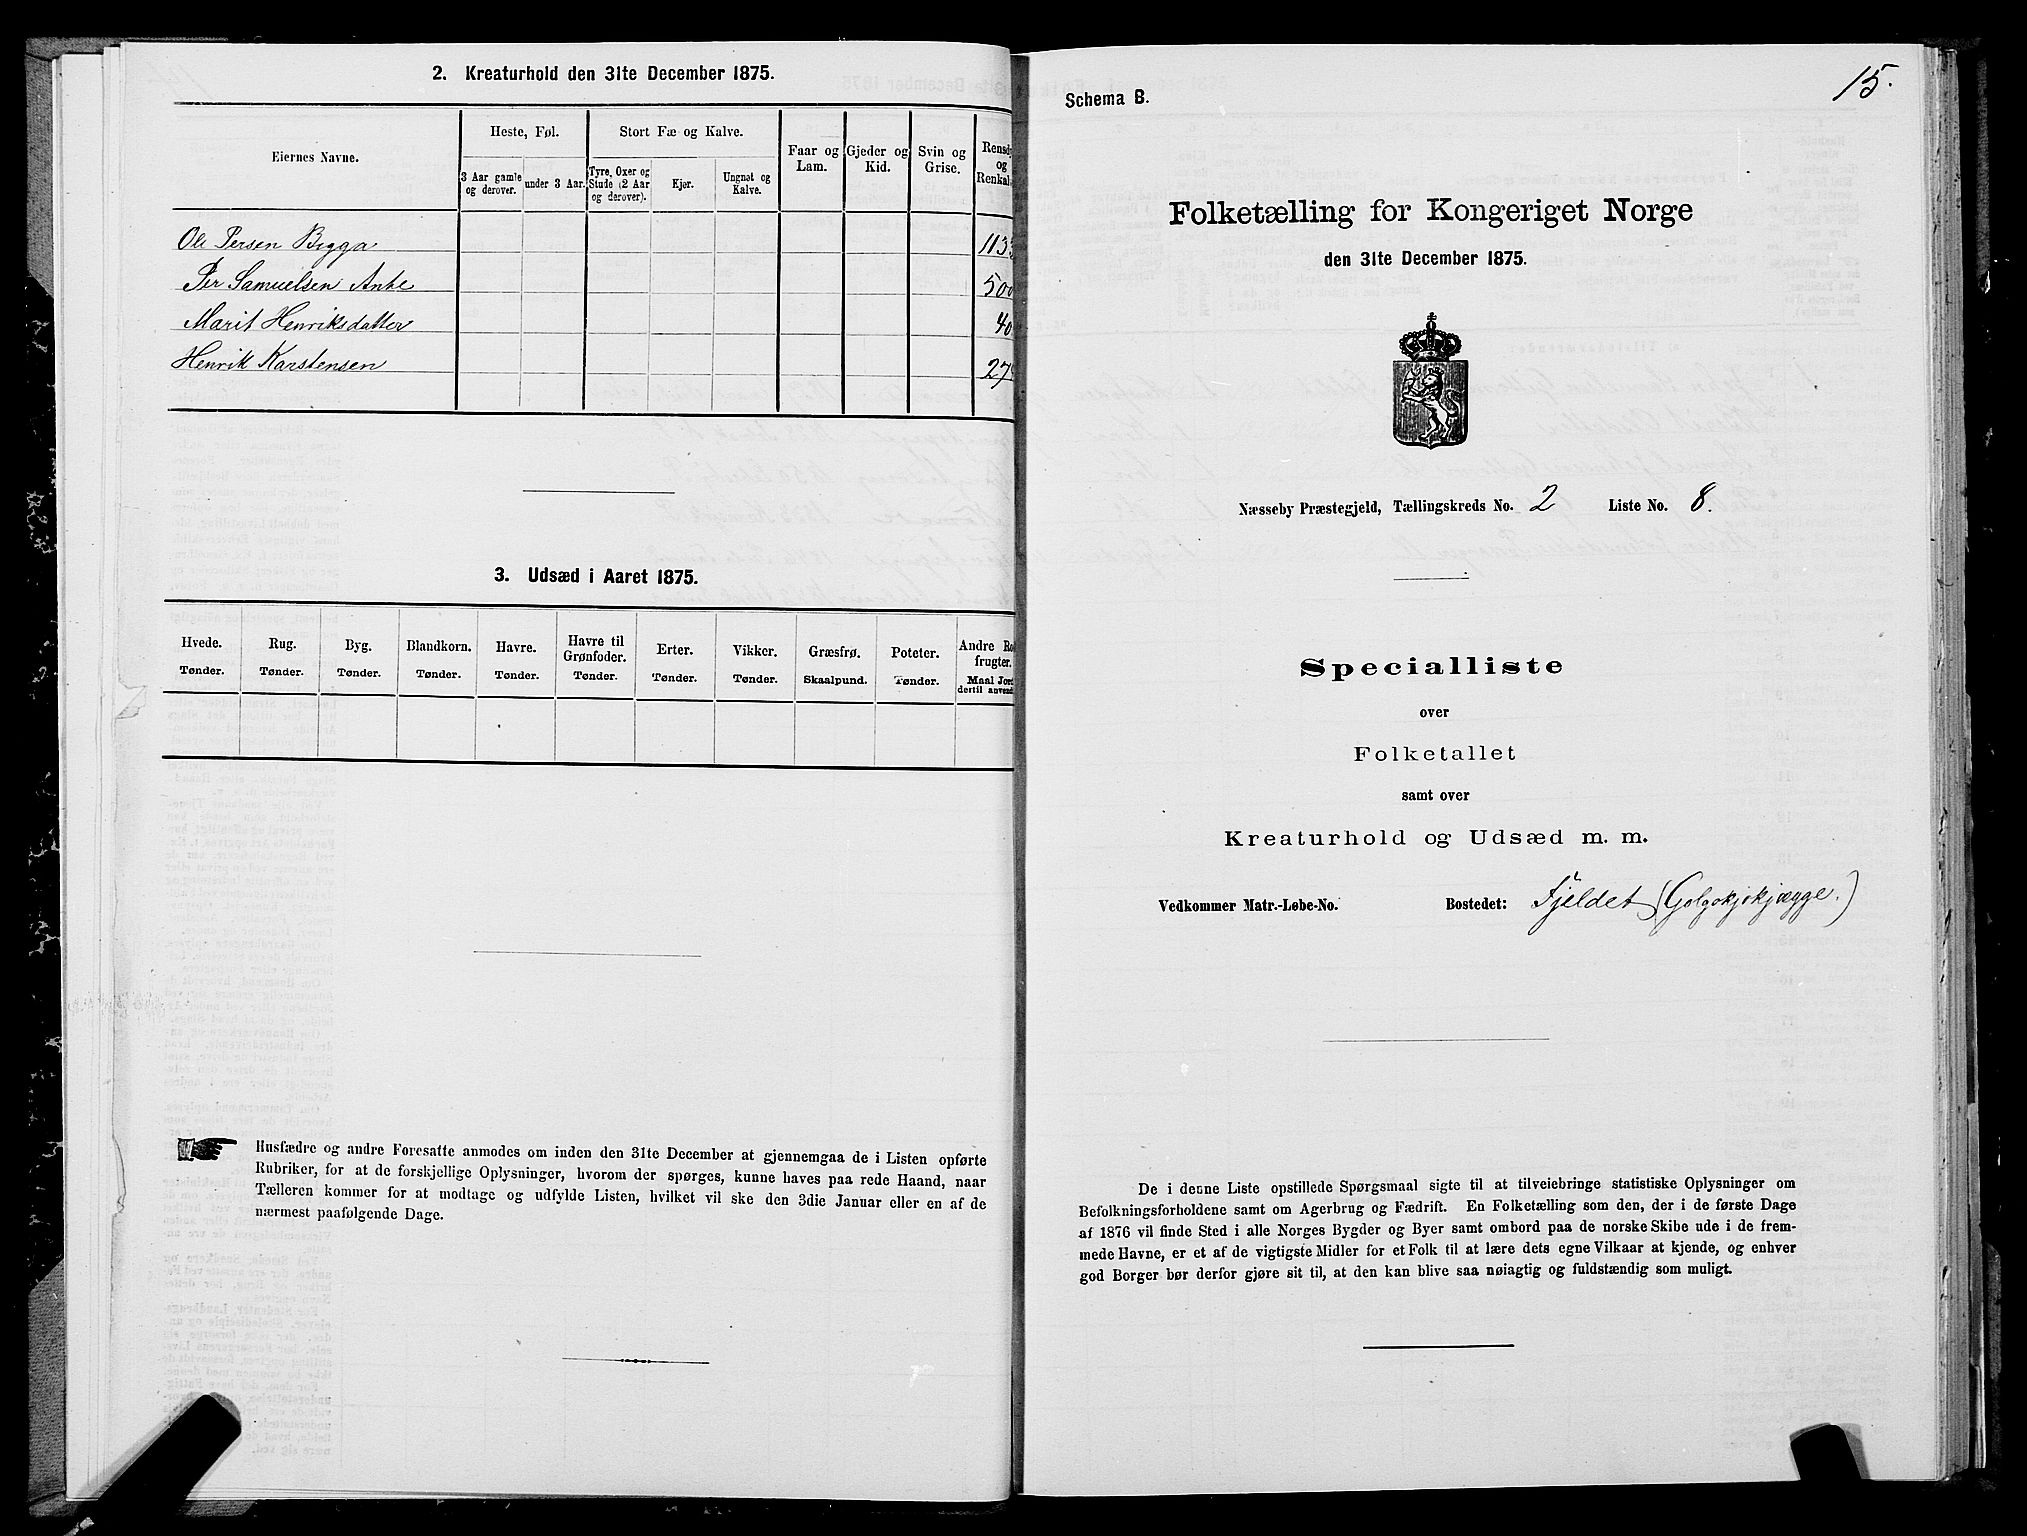 2. Kreaturhold den 31te December 1875.
Eiernes Navne.
Heste, Føl.
Stort Fæ og Kalve.
Faar og
Lam.
Gjeder og
Kid.
Svin og
Grise.
Rensdy
og
Renkal
3 Aar gamle
og derover.
under 3 Aar.
Tyre, Oxer og
Stude (2 Aar
og derover).
Kjør.
Ungnøt og
Kalve.
Ole Persen Bigga 113
Per Samuelsen Anti 500
Marit Henriksdatter 40
Henrik Karstensen 27
3. Udsæd i Aaret 1875.
Hvede.
Tønder.
Rug.
Tønder.
Byg.
Tønder.
Blandkorn.
Tønder.
Havre.
Tønder.
Havre til
Grønfoder.
Tønder.
Erter.
Tønder.
Vikker.
Tønder.
Græsfrø.
Skaalpund.
Poteter.
Tønder.
Andre Ro
frugter.
Maal Jord
dertil anvend
Husfædre og andre Foresatte anmodes om inden den 31te December at gjennemgaa de i Listen opførte
Rubriker, for at de forskjellige Oplysninger, hvorom der spørges, kunne haves paa rede Haand, naar
Tælleren kommer for at modtage og udfylde Listen, hvilket vil ske den 3die Januar eller en af de
nærmest paafølgende Dage.
15.
Schema B.
Folketælling for Kongeriget Norge
den 31te December 1875.
Næsseby Præstegjeld, Tællingskreds No. 2 Liste No. 8.
Specialliste
over
Folketallet
samt over
Kreaturhold og Udsæd m. m.
Vedkommer Matr.-Løbe-No. Bostedet: Fjeldet (Golgokjokjægge.)
De i denne Liste opstillede Spørgsmaal sigte til at tilveiebringe statistiske Oplysninger om
Befolkningsforholdene samt om Agerbrug og Fædrift. En Folketælling som den, der i de første Dage
af 1876 vil finde Sted i alle Norges Bygder og Byer samt ombord paa de norske Skibe ude i de frem-
mede Havne, er et af de vigtigste Midler for et Folk til at lære dets egne Vilkaar at kjende, og enhver
god Borger bør derfor gjøre sit til, at den kan blive saa nøiagtig og fuldstændig som muligt.